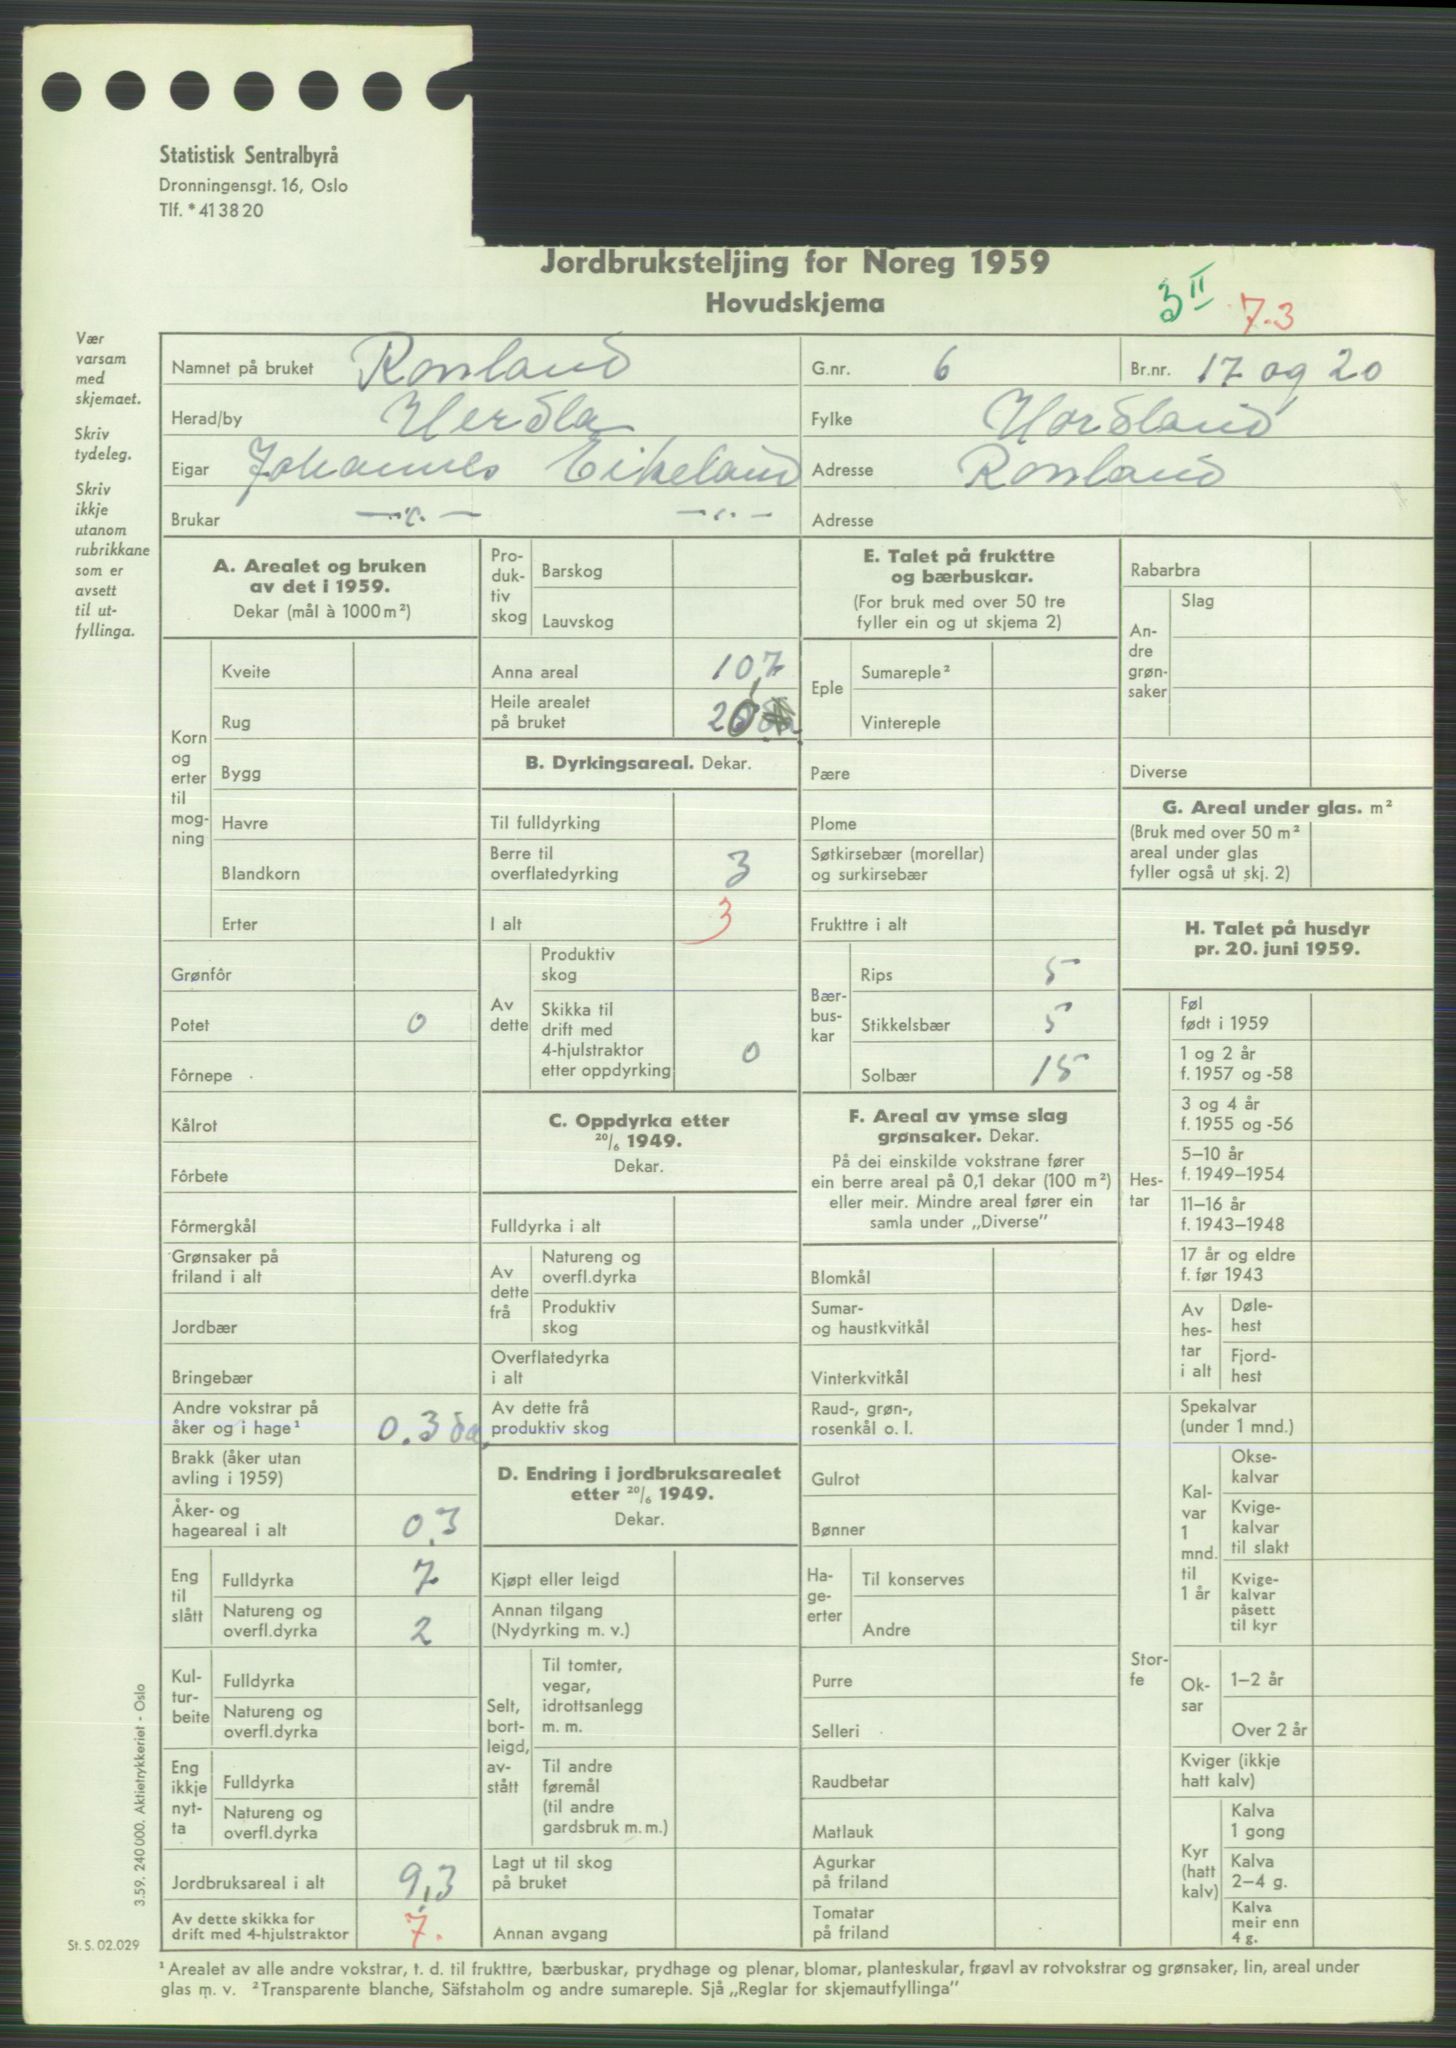 Statistisk Sentralbyrå
Dronningensgt. 16, Oslo
Tlf. * 41 38 20
Jordbruksteljing for Noreg 1959
Hovudskjema
3 II 7.3
Vær
varsam
med
skjemaet.
Skriv
tydeleg.
Skriv
ikkje
utanom
rubrikkane
som er
avsett
til ut-
fyllinga.
Namnet på bruket Rossland G.nr. 6 Br.nr. 17 og 20
Herad/by Herdla Fylke Hordland
Eigar Johannes Eikeland Adresse Rossland
Brukar —„— —„— Adresse
A. Arealet og bruken
av det i 1959.
Dekar (mål à 1000 m²)
Korn
og
erter
til
mog-
ning
Kveite
Rug
Bygg
Havre
Blandkorn
Erter
Grønfôr
Potet 0
Fôrnepe
Kålrot
Fôrbete
Fôrmergkål
Grønsaker på
friland i alt
Jordbær
Bringebær
Andre vokstrar på
åker og i hage¹ 0.3 da.
Brakk (åker utan
avling i 1959)
Åker- og
hageareal i alt 0,3
Eng
til
slått
Fulldyrka 7
Natureng og
overfl.dyrka 2
Kul-
tur-
beite
Fulldyrka
Natureng og
overfl.dyrka
Eng
ikkje
nyt-
ta
Fulldyrka
Natureng og
overfl.dyrka
Jordbruksareal i alt 9,3
Av dette skikka for
drift med 4-hjulstraktor 7.
Pro-
duk-
tiv
skog
Barskog
Lauvskog
Anna areal 10,7
Heile arealet
på bruket 20
B. Dyrkingsareal. Dekar.
Til fulldyrking
Berre til
overflatedyrking 3
I alt 3
Av
dette
Produktiv
skog
Skikka til
drift med
4-hjulstraktor
etter oppdyrking 0
C. Oppdyrka etter
20/6 1949.
Dekar.
Fulldyrka i alt
Av
dette
frå
Natureng og
overfl.dyrka
Produktiv
skog
Overflatedyrka
i alt
Av dette frå
produktiv skog
D. Endring i jordbruksarealet
etter 20/6 1949.
Dekar.
Kjøpt eller leigd
Annan tilgang
(Nydyrking m. v.)
Selt,
bort-
leigd,
av-
stått
Til tomter,
vegar,
idrottsanlegg
m. m.
Til andre
føremål
(til andre
gardsbruk m. m.)
Lagt ut til skog
på bruket
Annan avgang
E. Talet på frukttre
og bærbuskar.
(For bruk med over 50 tre
fyller ein og ut skjema 2)
Eple
Sumareple²
Vintereple
Pære
Plome
Søtkirsebær (morellar)
og surkirsebær
Frukttre i alt
Bær-
bus-
kar
Rips 5
Stikkelsbær 5
Solbær 15
F. Areal av ymse slag
grønsaker. Dekar.
På dei einskilde vokstrane fører
ein berre areal på 0,1 dekar (100 m²)
eller meir. Mindre areal fører ein
samla under „Diverse”
Blomkål
Sumar-
og haustkvitkål
Vinterkvitkål
Raud-, grøn-,
rosenkål o. l.
Gulrot
Bønner
Ha-
ge-
erter
Til konserves
Andre
Purre
Selleri
Raudbetar
Matlauk
Agurkar
på friland
Tomatar
på friland
Rabarbra
An-
dre
grøn-
saker
Slag
Diverse
G. Areal under glas. m²
(Bruk med over 50 m²
areal under glas
fyller også ut skj. 2)
H. Talet på husdyr
pr. 20. juni 1959.
Hes-
tar
Føl
født i 1959
1 og 2 år
f. 1957 og -58
3 og 4 år
f. 1955 og -56
5–10 år
f. 1949–1954
11–16 år
f. 1943–1948
17 år og eldre
f. før 1943
Av
hes-
tar
i alt
Døle-
hest
Fjord-
hest
Stor-
fe
Spekalvar
(under 1 mnd.)
Kal-
var
1
mnd.
til
1 år
Okse-
kalvar
Kvige-
kalvar
til slakt
Kvige-
kalvar
påsett
til kyr
Ok-
sar
1–2 år
Over 2 år
Kviger (ikkje
hatt kalv)
Kyr
(hatt
kalv)
Kalva
1 gong
Kalva
2–4 g.
Kalva
meir enn
4 g.
3.59. 240 000. Aktietrykkeriet - Oslo
St. S. 02.029
¹ Arealet av alle andre vokstrar, t. d. til frukttre, bærbuskar, prydhage og plenar, blomar, planteskular, frøavl av rotvokstrar og grønsaker, lin, areal under
glas m. v. ² Transparente blanche, Säfstaholm og andre sumareple. Sjå „Reglar for skjemautfyllinga”